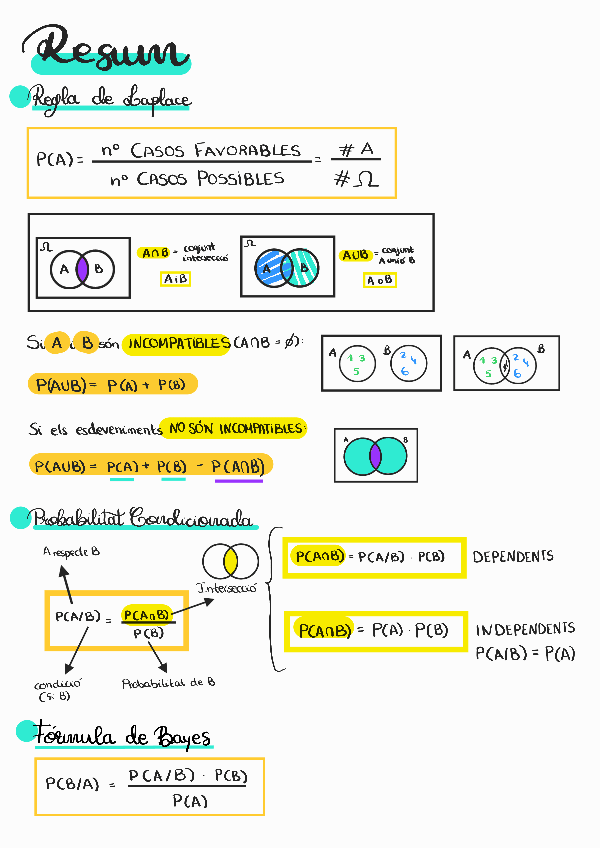 Resum
Regla de Laplace
P(A) = nº CASOS FAVORABLES / nº CASOS POSSIBLES = # A / # Ω
Ω A B
A∩B = conjunt intersecció
A i B
Ω A B
A∪B = conjunt A unió B
A o B
Si A i B són INCOMPATIBLES (A∩B = ∅):
A 1 3 5 B 2 4 6
A 1 3 5 ∅ 2 4 6 B
P(A∪B) = P(A) + P(B)
Si els esdeveniments NO SÓN INCOMPATIBLES:
A B
P(A∪B) = P(A) + P(B) - P(A∩B)
Probabilitat Condicionada
A respecte B
Intersecció
P(A/B) = P(A∩B) / P(B)
condició
(Si B)
Probabilitat de B
P(A∩B) = P(A/B) · P(B) DEPENDENTS
P(A∩B) = P(A) · P(B) INDEPENDENTS
P(A/B) = P(A)
Fórmula de Bayes
P(B/A) = P(A/B) · P(B) / P(A)